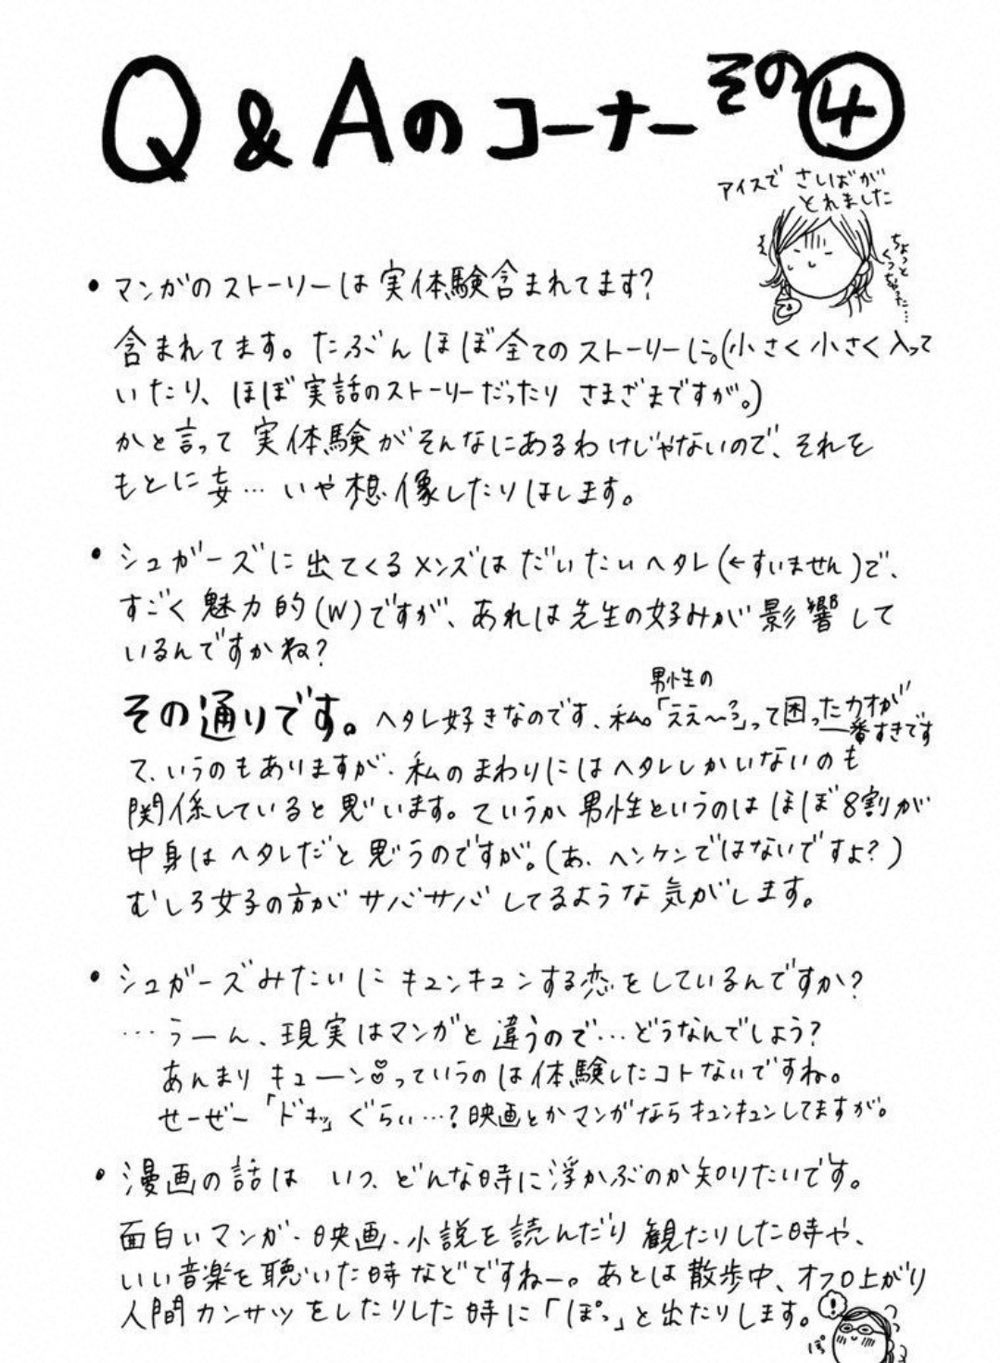 Q&Aのコーナーその④
アイスで さしばが
とれました
ちょっと
くっちゃった…
・マンガのストーリーは実体験含まれてます?
含まれてます。たぶんほぼ全てのストーリーに。(小さく小さく入って
いたり、ほぼ実話のストーリーだったり さまざまですが。)
かと言って実体験がそんなにあるわけじゃないので、それを
もとに妄…いや想像したりはします。
・シュガーズに出てくるメンズはだいたいヘタレ(←すいません)で、
すごく魅力的(W)ですが、あれは先生の好みが影響して
いるんですかね?
その通りです。ヘタレ好きなのです、私。男性の「ええ〜っ」って困ったカオが
一番すきです
て、いうのもありますが、私のまわりにはヘタレしかいないのも
関係していると思います。ていうか男性というのはほぼ8割が
中身はヘタレだと思うのですが。(あ、ヘンケンではないですよ?)
むしろ女子の方がサバサバしてるような気がします。
・シュガーズみたいにキュンキュンする恋をしているんですか?
…うーん、現実はマンガと違うので…どうなんでしょう?
あんまり キューン♡っていうのは体験したコトないですね。
せーぜー「ドキッ」ぐらい…?映画とかマンガならキュンキュンしてますが。
・漫画の話は いつ、どんな時に浮かぶのか知りたいです。
面白いマンガ・映画・小説を読んだり観たりした時や、
いい音楽を聴いた時などですねー。あとは散歩中、オフロ上がり
人間カンサツをしたりした時に「ぽっ」と出たりします。
!
ぽ